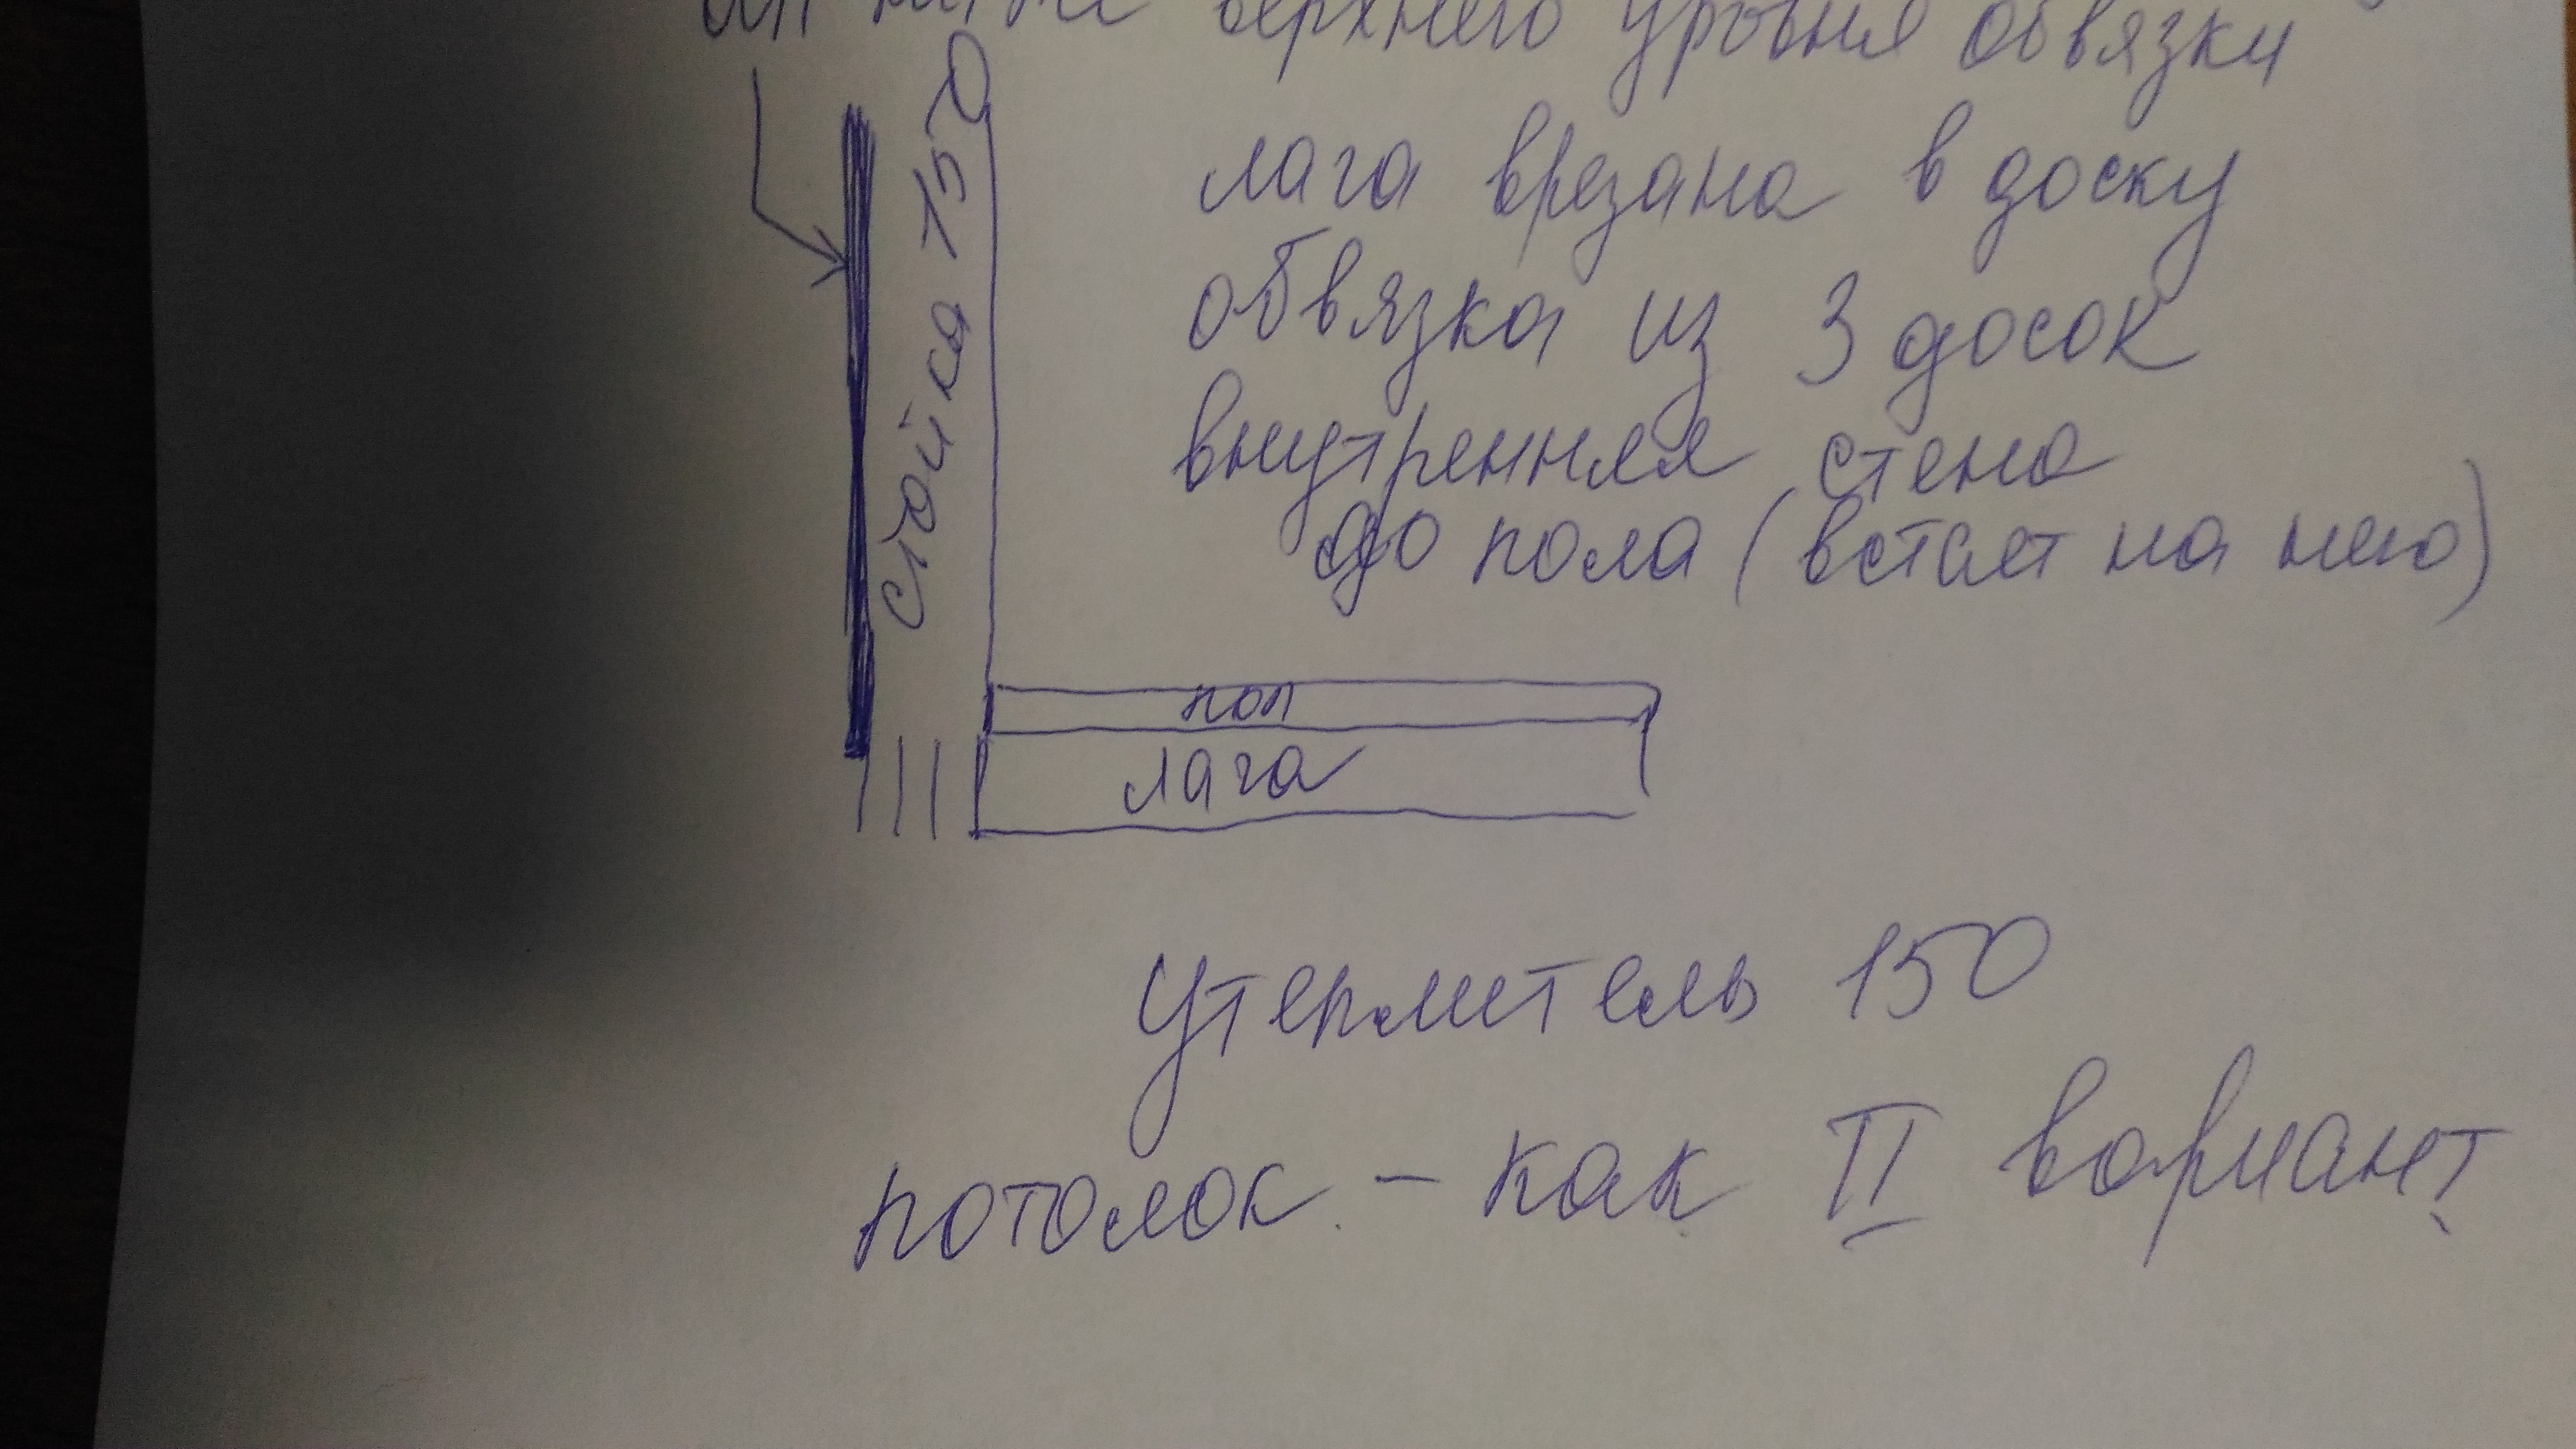 ниже верхнего уровня обвязки
стойка 150
лага врезана в доску
обвязка из 3 досок
внутренняя стена
до пола (встает на него)
пол
лага
Утеплитель 150
потолок - как II вариант